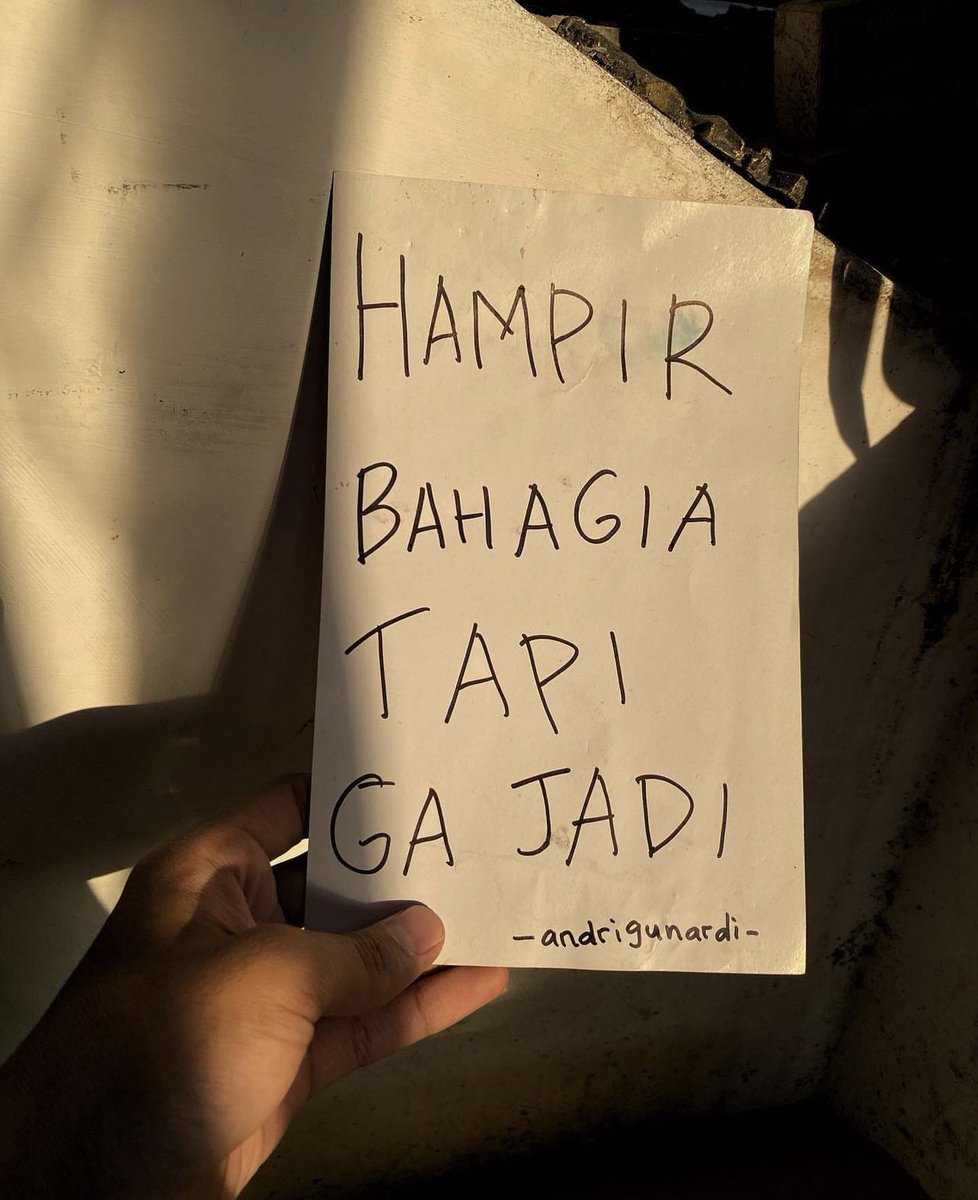 HAMPIR
BAHAGIA
TAPI
GA JADI
-andrigunardi-